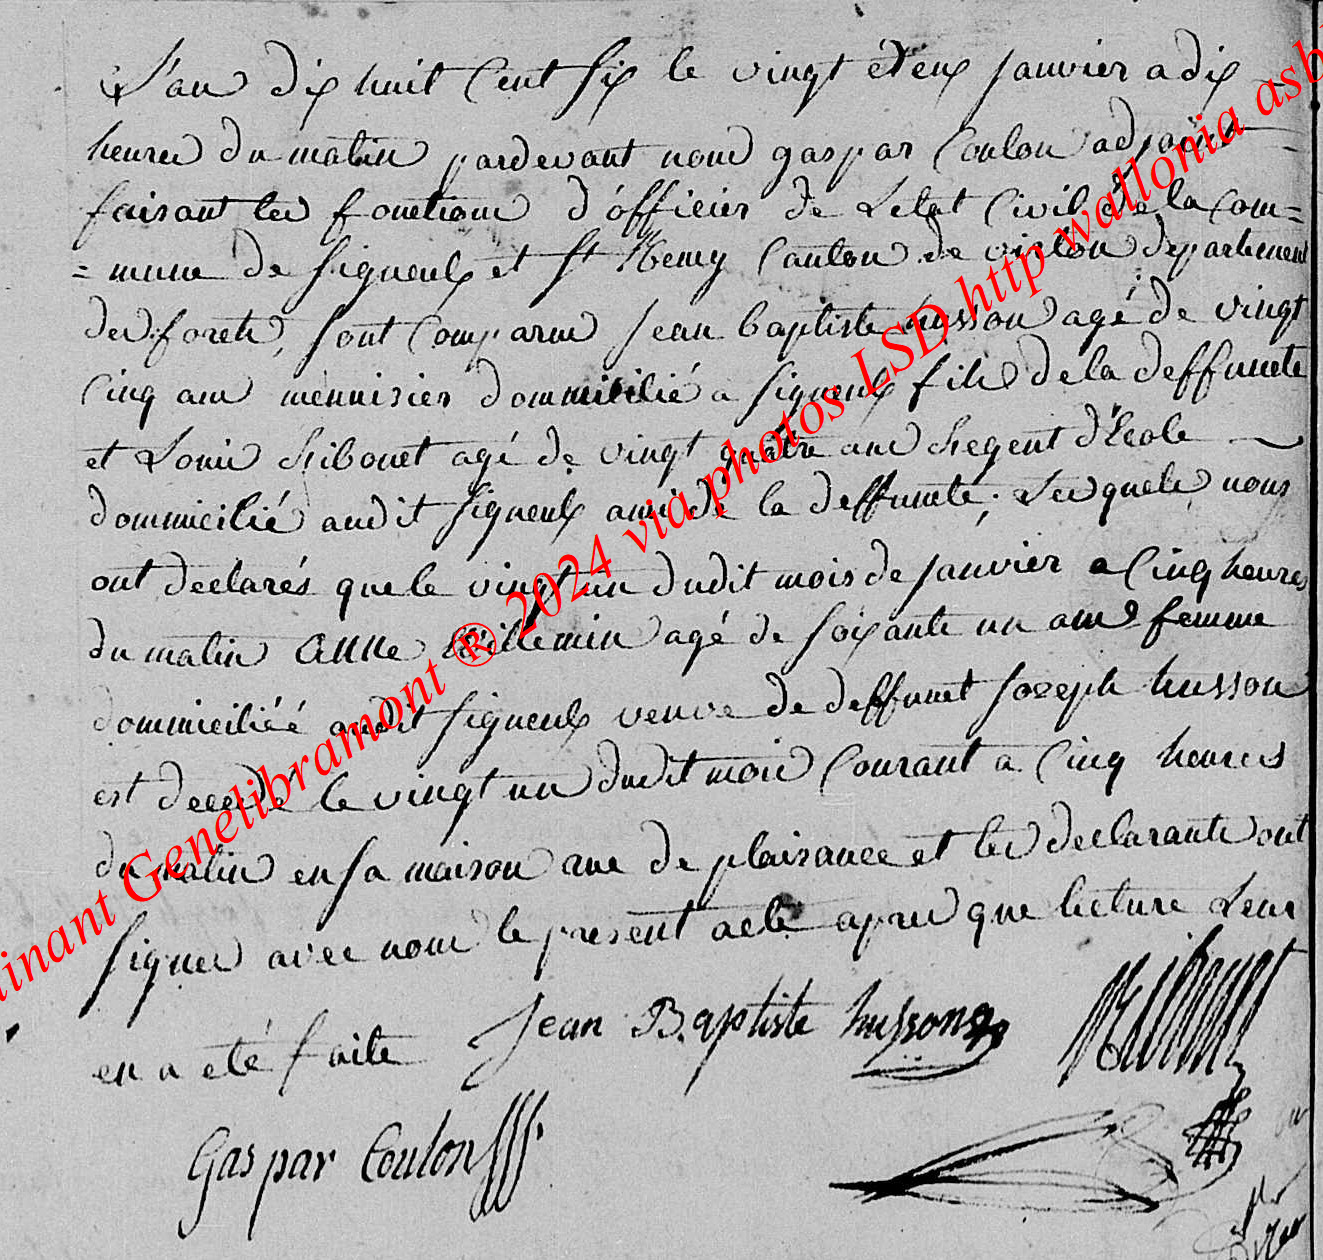 L'an dix huit Cent six le vingt deux janvier a dix
heures du matin pardevant nous gaspar Coulon adjoint
faisant les fonctions d'officier de Letat Civil de la Com=
=mune de Signeulx et St Remy Canton de virton departement
des forets, sont Comparus jean baptiste husson agé de vingt
Cinq ans menuisier dommicilié a signeulx fils de la deffuncte
et Louis Ribonet agé de vingt quatre ans Regent d'Ecole
dommicilié audit signeulx ami de la deffuncte, Lesquels nous
ont declarés que le vingt un dudit mois de janvier a Cinq heures
du matin Anne Willemin agé de soixante un ans femme
dommiciliéé audit signeulx veuve de deffunct joseph husson
est decedé le vingt un dudit mois Courant a Cinq heures
du matin en sa maison rue de plaisance et les declarants ont
signer avec nous le present acte apres que lecture Leur
en a eté faite Jean Baptiste hussong Ribonet
Gaspar Coulon
dinant Genelibramont ® 2024 via photos LSD http wallonia asb